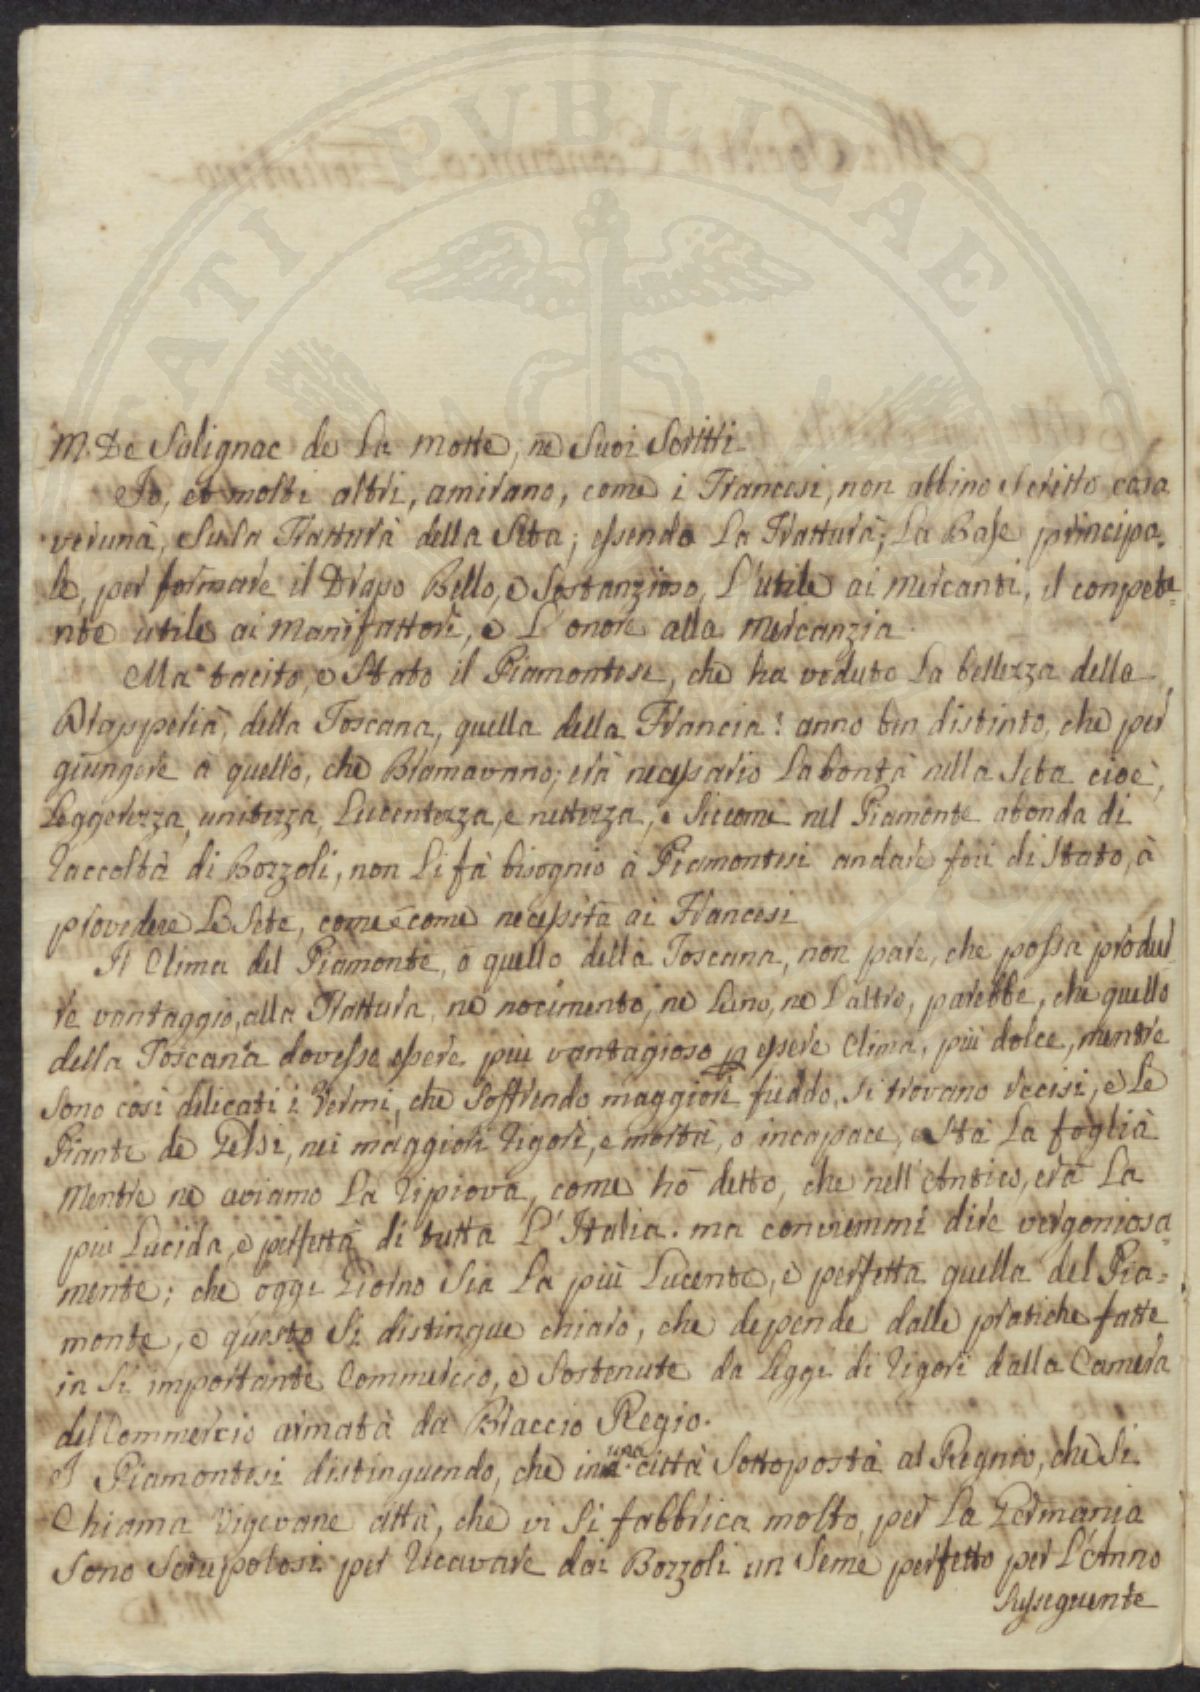 M. De Salignac de La Motte, ne Suoi Scritti
Io, et molti altri, amirano, come i Francesi, non abbino Scritto cosa
veruna, Sulla Trattura della Seta; essendo La Trattura, La Base principa=
le, per formare il Drapo Bello, e Sostanzioso, L'utile ai Mercanti, il conpete=
nte utile ai Manifattori, e L'onore alla Mercanzia.
Ma tacito, e Stato il Piamontese, che ha veduto La bellezza della
Drapperia, della Toscana, quella della Francia: anno ben distinto, che per
giungere à quello, che Bramavano; era necessario La bontà nella Seta cioè,
Leggerezza, unitezza, Lucentezza, e nettezza, e Siccome nel Piamonte abonda di
raccoltà di Bozzoli, non Li fà bisognio à Piamontesi andare fori di Stato, à
provedere Le Sete, come e come necessità ai Francesi
Il Clima del Piamonte, o quello della Toscana, non pare, che possa produr=
re vantaggio, alla Trattura, ne nocimento, ne L'uno, ne L'altro, parebbe, che quello
della Toscana dovesse essere più vantagioso p essere Clima, più dolce, mentre
Sono così dilicati i Vermi, che Soffrendo maggiore freddo, Si trovano recisi, e Le
Piante de Gelsi, nei maggiori rigori, e morta, o incapace, e Stà La foglià
Mentre ne aviamo La riprova, come hò detto, che nell'Antico, era La
più Lucida, e perfetta di tutta L'Italia. ma conviemmi dire vergoniosa=
mente; che oggi Giorno Sia La più Lucente, e perfetta quella del Pia=
monte, e questo Si distingue chiaro, che depende dalle pratiche fatte
in Sì importante Commercio, e Sostenute da Leggi di rigori dalla Camera
del Commercio armatà da Braccio Regio.
I Piamontesi distinguendo, che in una città Sottopostà al Regnio, che Si
Chiama Vigevane città, che vi Si fabbrica molto, per La Germania
Sono Scrupolosi per ricavare dai Bozzoli un Seme perfetto per L'Anno
Susseguente